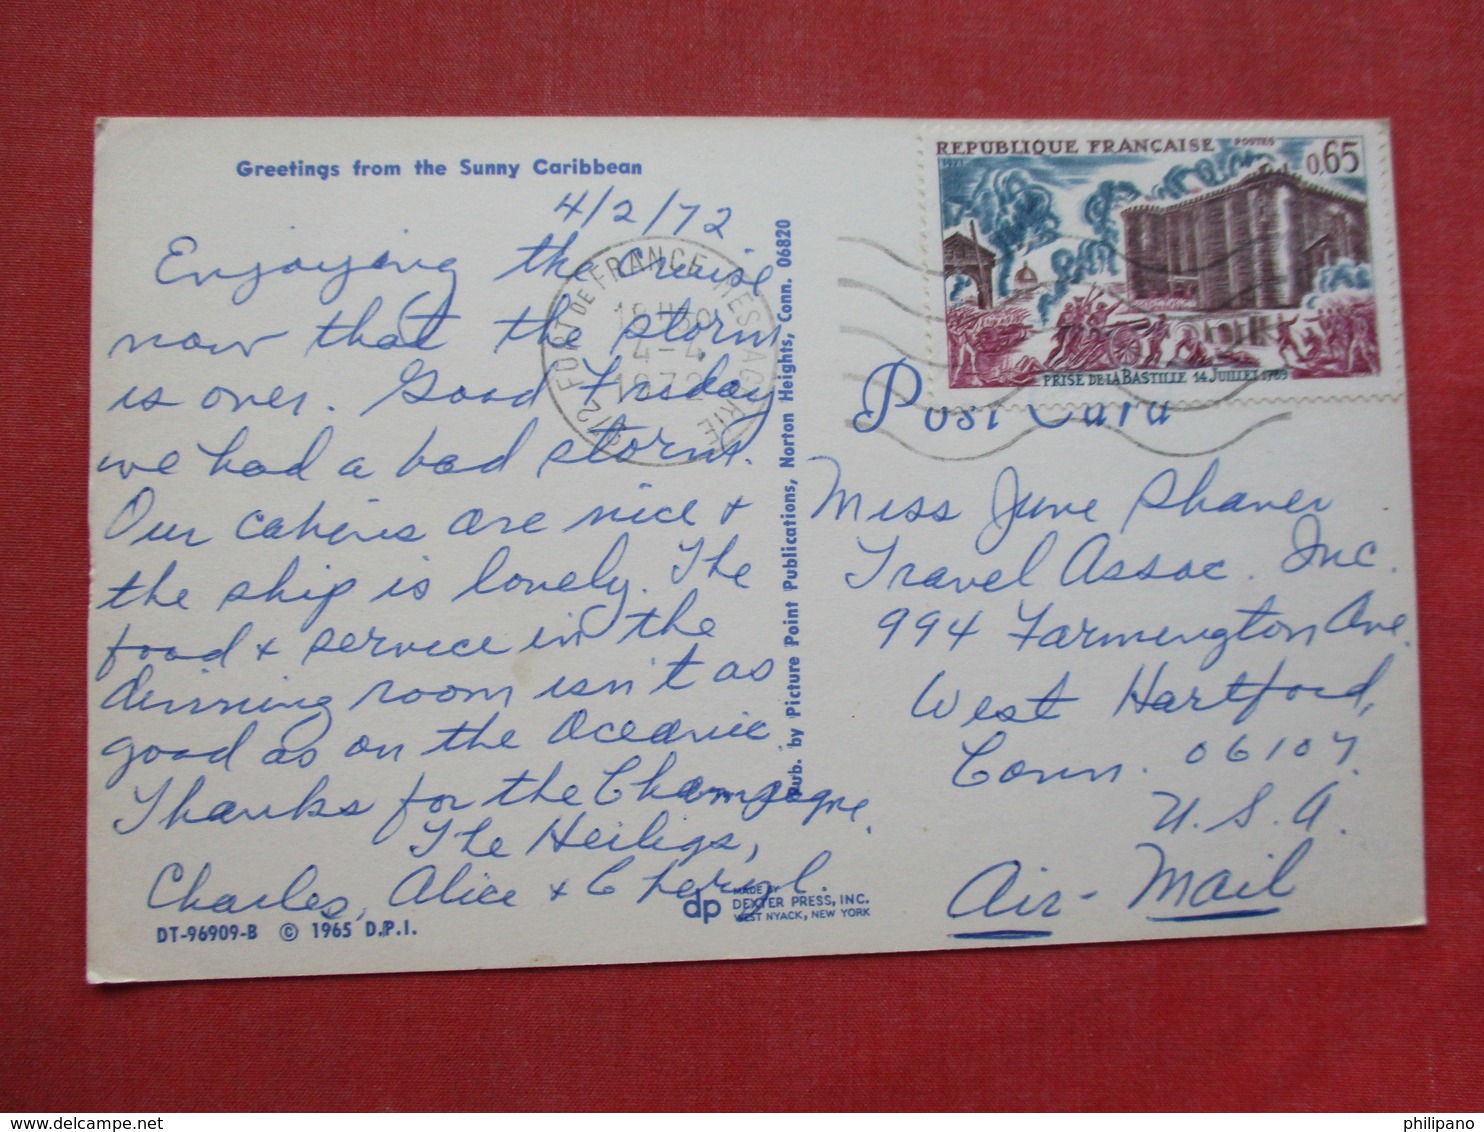 Greetings from the Sunny Caribbean
4/2/72
Enjoying the cruise
now that the storm
is over. Good Friday
we had a bad storm.
Our cabins are nice +
the ship is lovely. The
food + service in the
dinning room isn't as
good as on the Oceanic
Thanks for the Champagne.
The Heiligs,
Charles, Alice + Cheryl.
DT-96909-B © 1965 D.P.I.
dp
MADE BY
DEXTER PRESS, INC.
WEST NYACK, NEW YORK
Pub. by Picture Point Publications, Norton Heights, Conn. 06820
FORT DE FRANCE MESSAGERIE
4-4
1972
REPUBLIQUE FRANÇAISE POSTES
1971
0,65
PRISE DE LA BASTILLE 14 JUILLET 1789
Post Card
Miss June Shaver
Travel Assoc. Inc.
994 Farmington Ave.
West Hartford,
Conn. 06107
U.S.A.
Air-Mail
delcampe.net
philipano